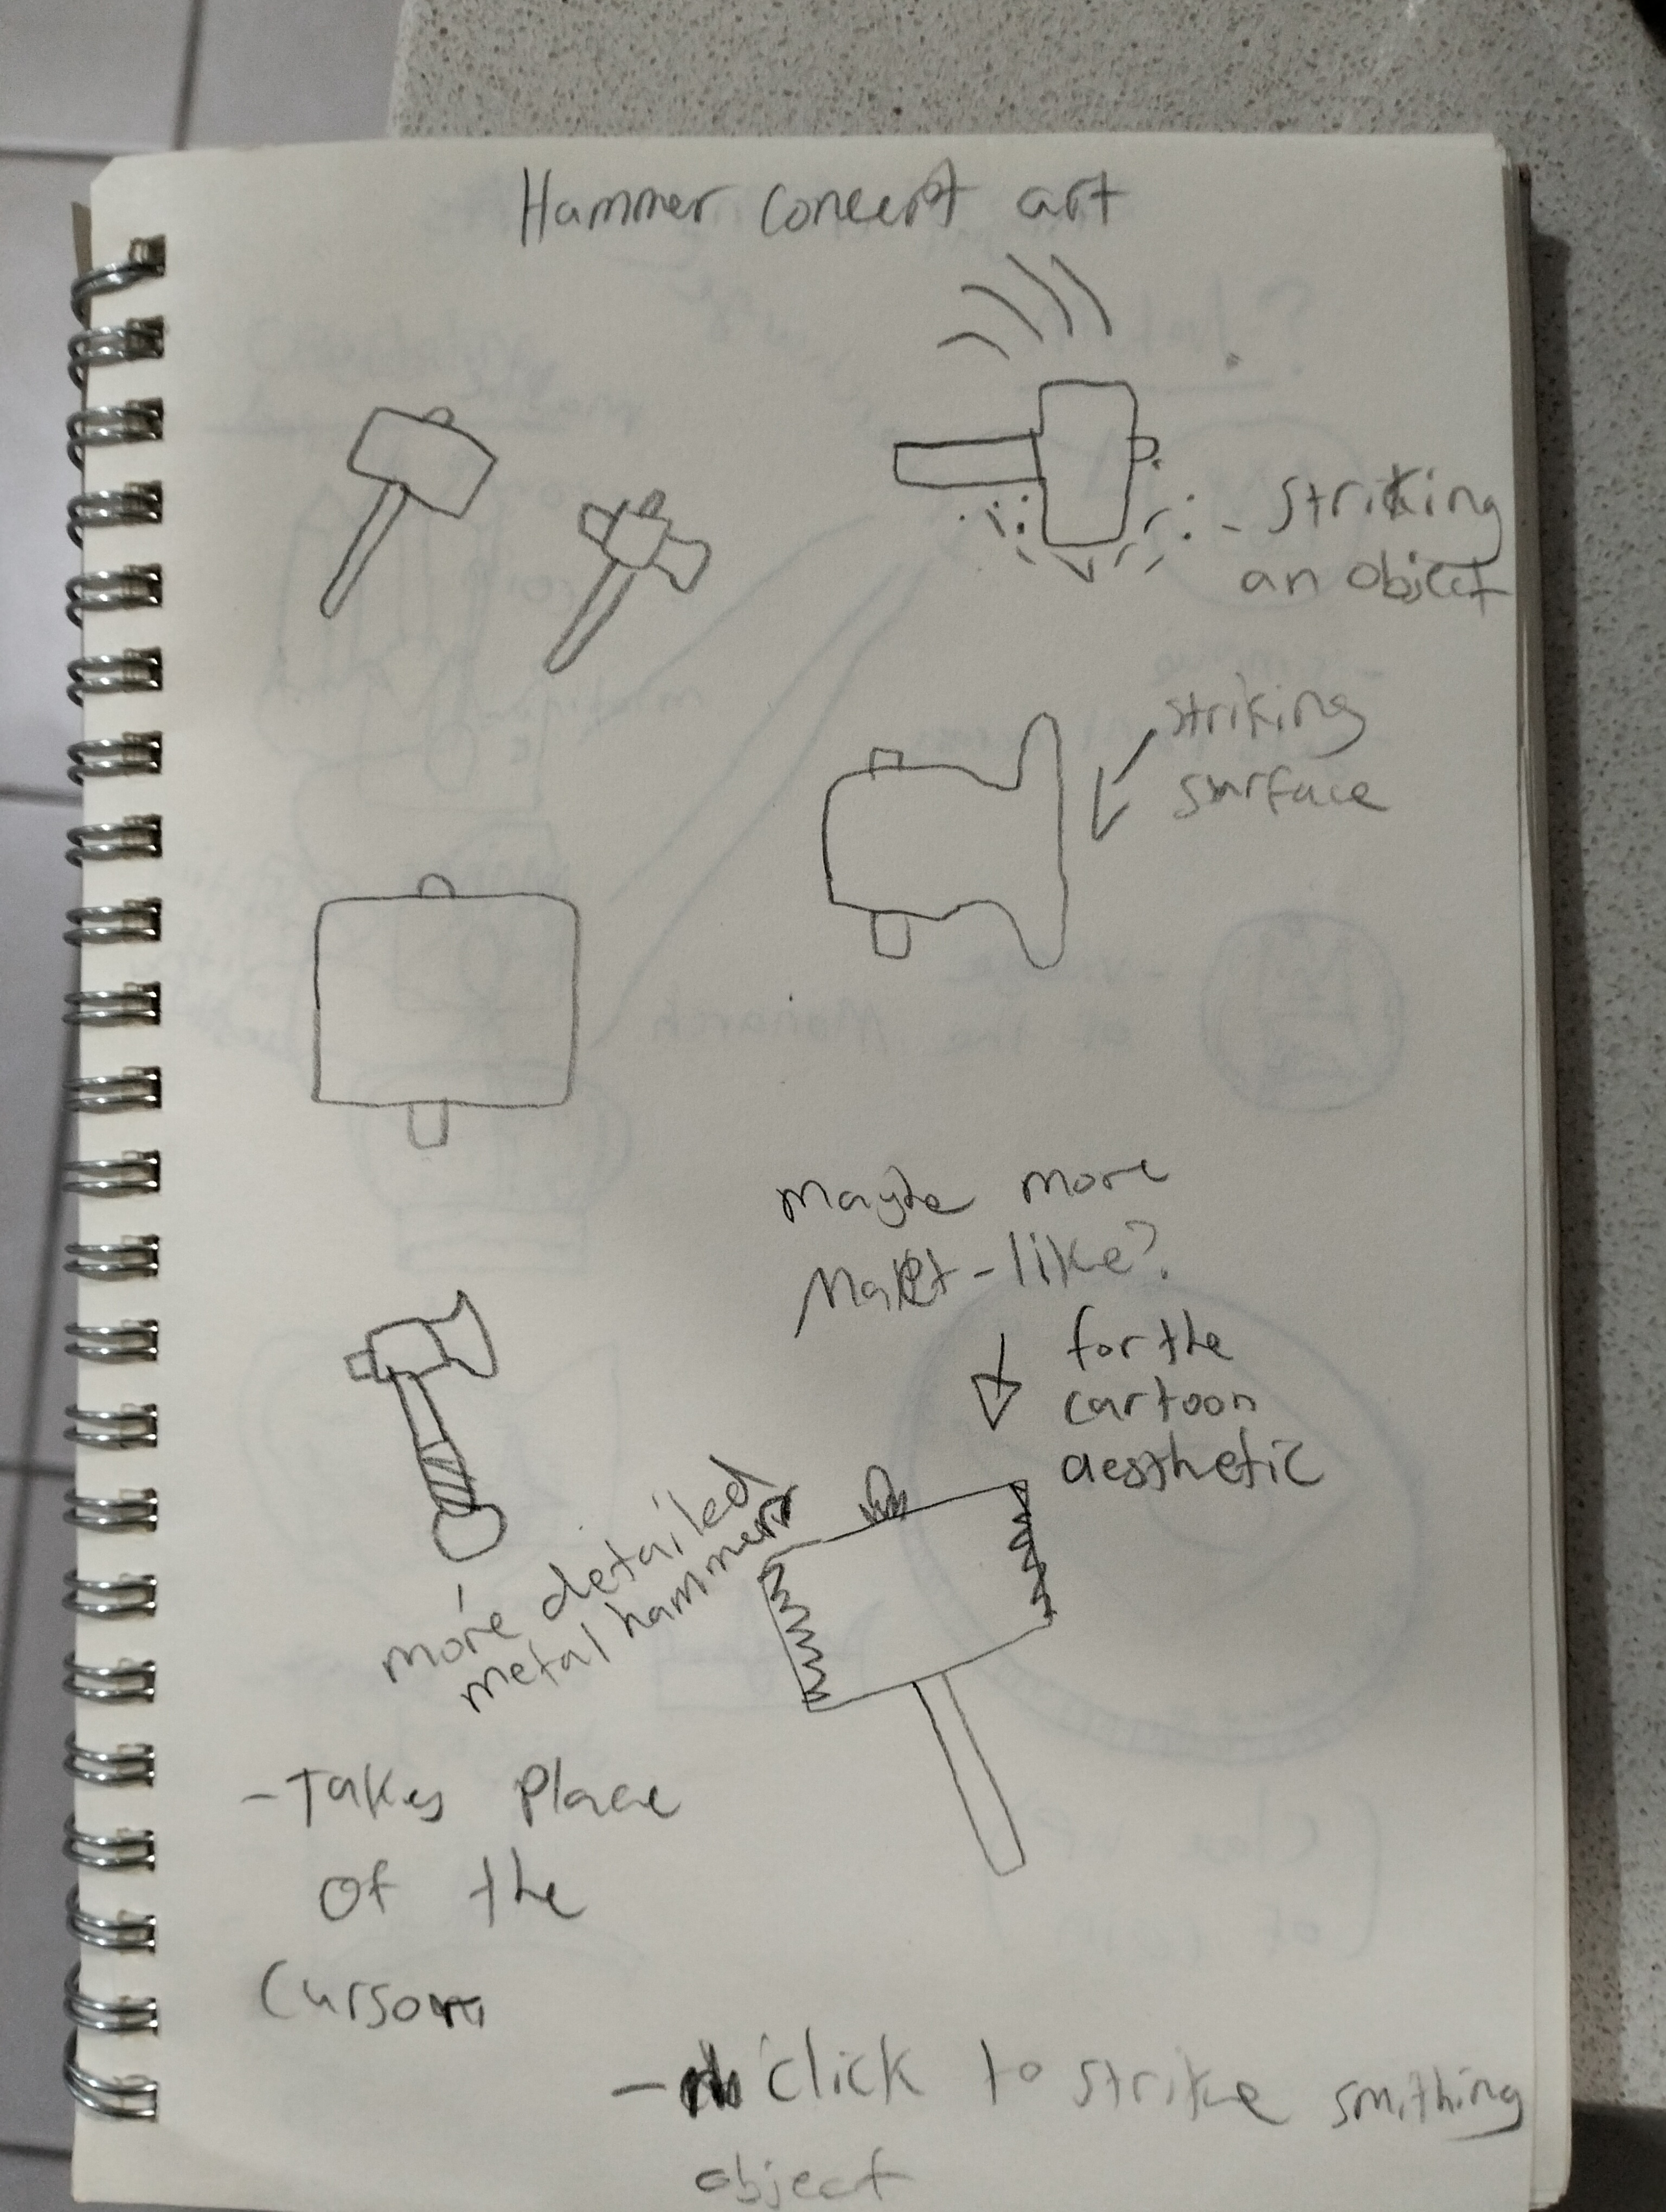 Hammer concept art
- striking
an object
striking
surface
maybe more
Mallet-like?
for the
cartoon
aesthetic
more detailed
metal hammer
- Takes place
of the
Cursor
- click to strike smithing
object